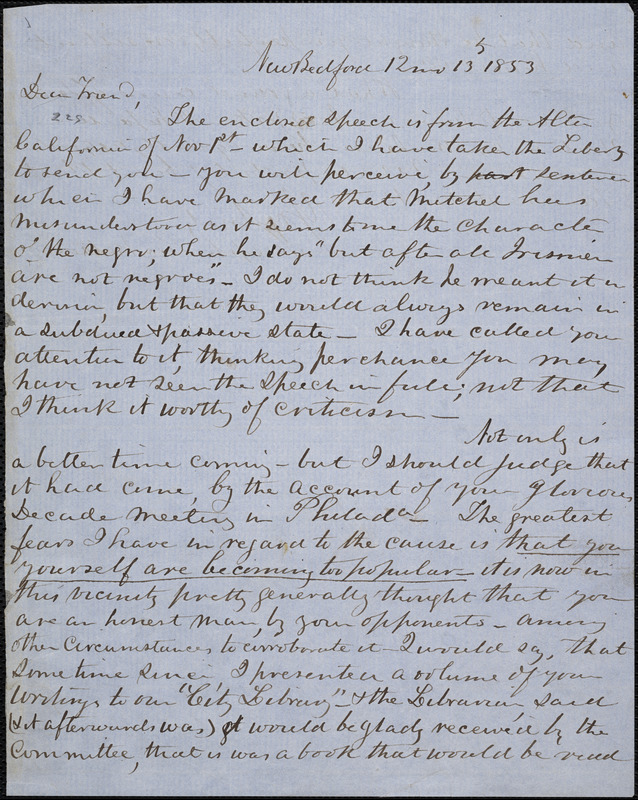 New Bedford 12mo 15 1853
Dear Friend,
The enclosed speech is from the Alta
California of Nov 1st - which I have taken the Liberty
to send you - You will perceive, by part sentence
which I have marked that Mitchel has
misunderstood as it seems to me the character
of the negro; when he says "but after all Irishmen
are not negroes" - I do not think he meant it in
derision, but that they would always remain in
a subdued & passive state - I have called your
attention to it, thinking perchance you may
have not seen the speech in full; not that
I think it worthy of criticism -
Not only is
a better time coming - but I should judge that
it had come, by the account of your Glorious
Decade Meeting in Philada - The greatest
fears I have in regard to the cause is that you
yourself are becoming too popular - it is now in
this vicinity pretty generally thought that you
are an honest man, by your opponents - among
other circumstances to corroborate it I would say, that
some time since I presented a volume of your
writings to our "City Library" - & the Librarian said
(& it afterwards was) it would be gladly received by the
Committee, that is was a book that would be read